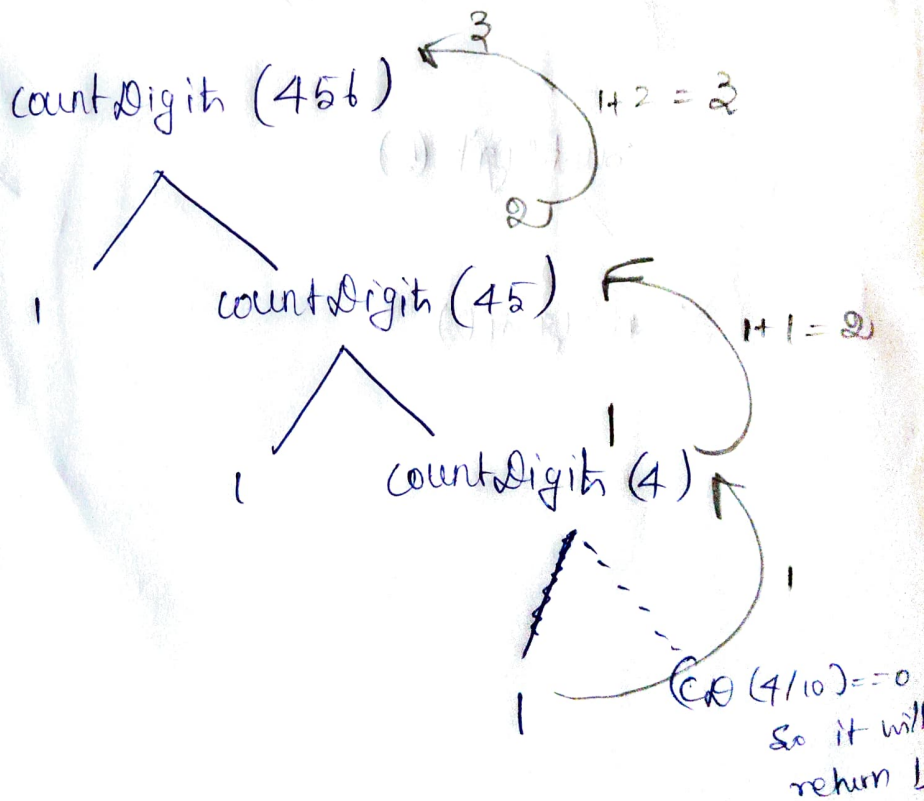 3
countDigits (456)
1+2 = 3
2
1
countDigits (45)
1+1 = 2
1
1
countDigits (4)
1
1
CD (4/10) == 0
So it will
return 1